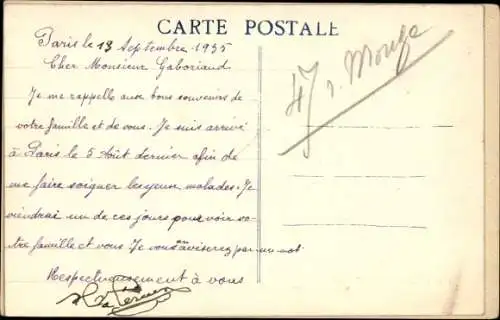 CARTE POSTALE
Paris le 13 Septembre 1935
Cher Monsieur Gaboriaud
Je me rappelle aux bons souvenirs de
votre famille et de vous. Je suis arrivé
à Paris le 5 Août dernier afin de
me faire soigner les yeux malades. Je
viendrai un de ces jours pour voir vo-
tre famille et vous Je vous aviserez par un mot
Respectueusement à vous
47 r. Monge